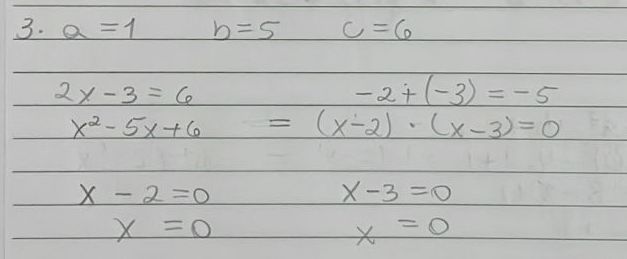 3. a = 1 b = 5 c = 6
2x - 3 = 6 -2 + (-3) = -5
x² - 5x + 6 = (x - 2) · (x - 3) = 0
x - 2 = 0 x - 3 = 0
x = 0 x = 0